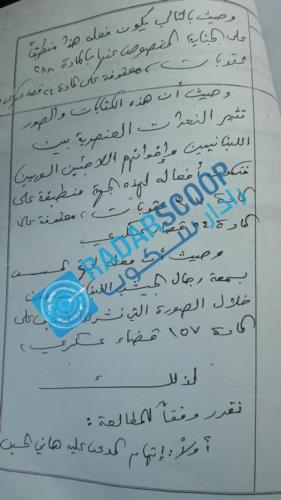 وحيث بالتالي يكون فعله هذا منطبقاً
على الجناية المنصوص عنها بالمادة ٢٨٨
عقوبات معطوفة على المادة ٢٤ قضاء عسكري
وحيث أن هذه الكتابات والصور
تثير النعرات العنصرية بين
اللبنانيين وإخوانهم اللاجئين السوريين
فتكون أفعاله لهذه الجهة منطبقة على
عقوبات معطوفة على
المادة ٢٤ قضاء عسكري
وحيث فعله المس
بسمعة رجال الجيش
خلال الصورة التي على
المادة ١٥٧ قضاء عسكري
لذلك
نقرر وفقاً للمطالعة:
أولاً: إتهام المدعى عليه هاني
RADARSCOOP
رادار سكوب